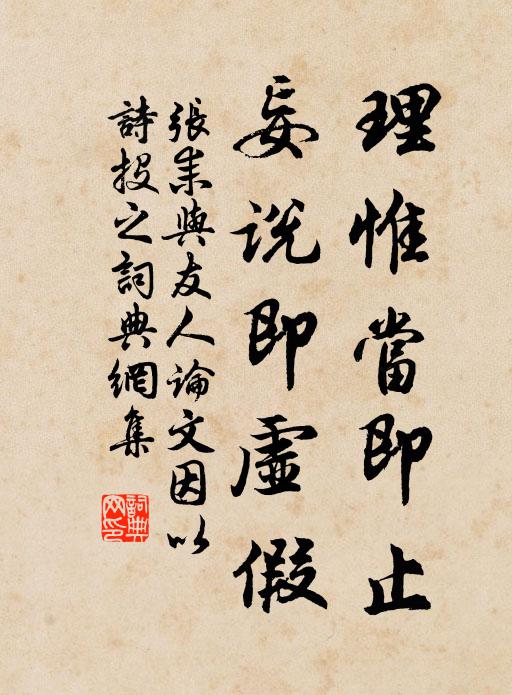 理惟當即止
妄説即虛假
張耒與友人論文因以
詩投之詞典網集
詞典
网印